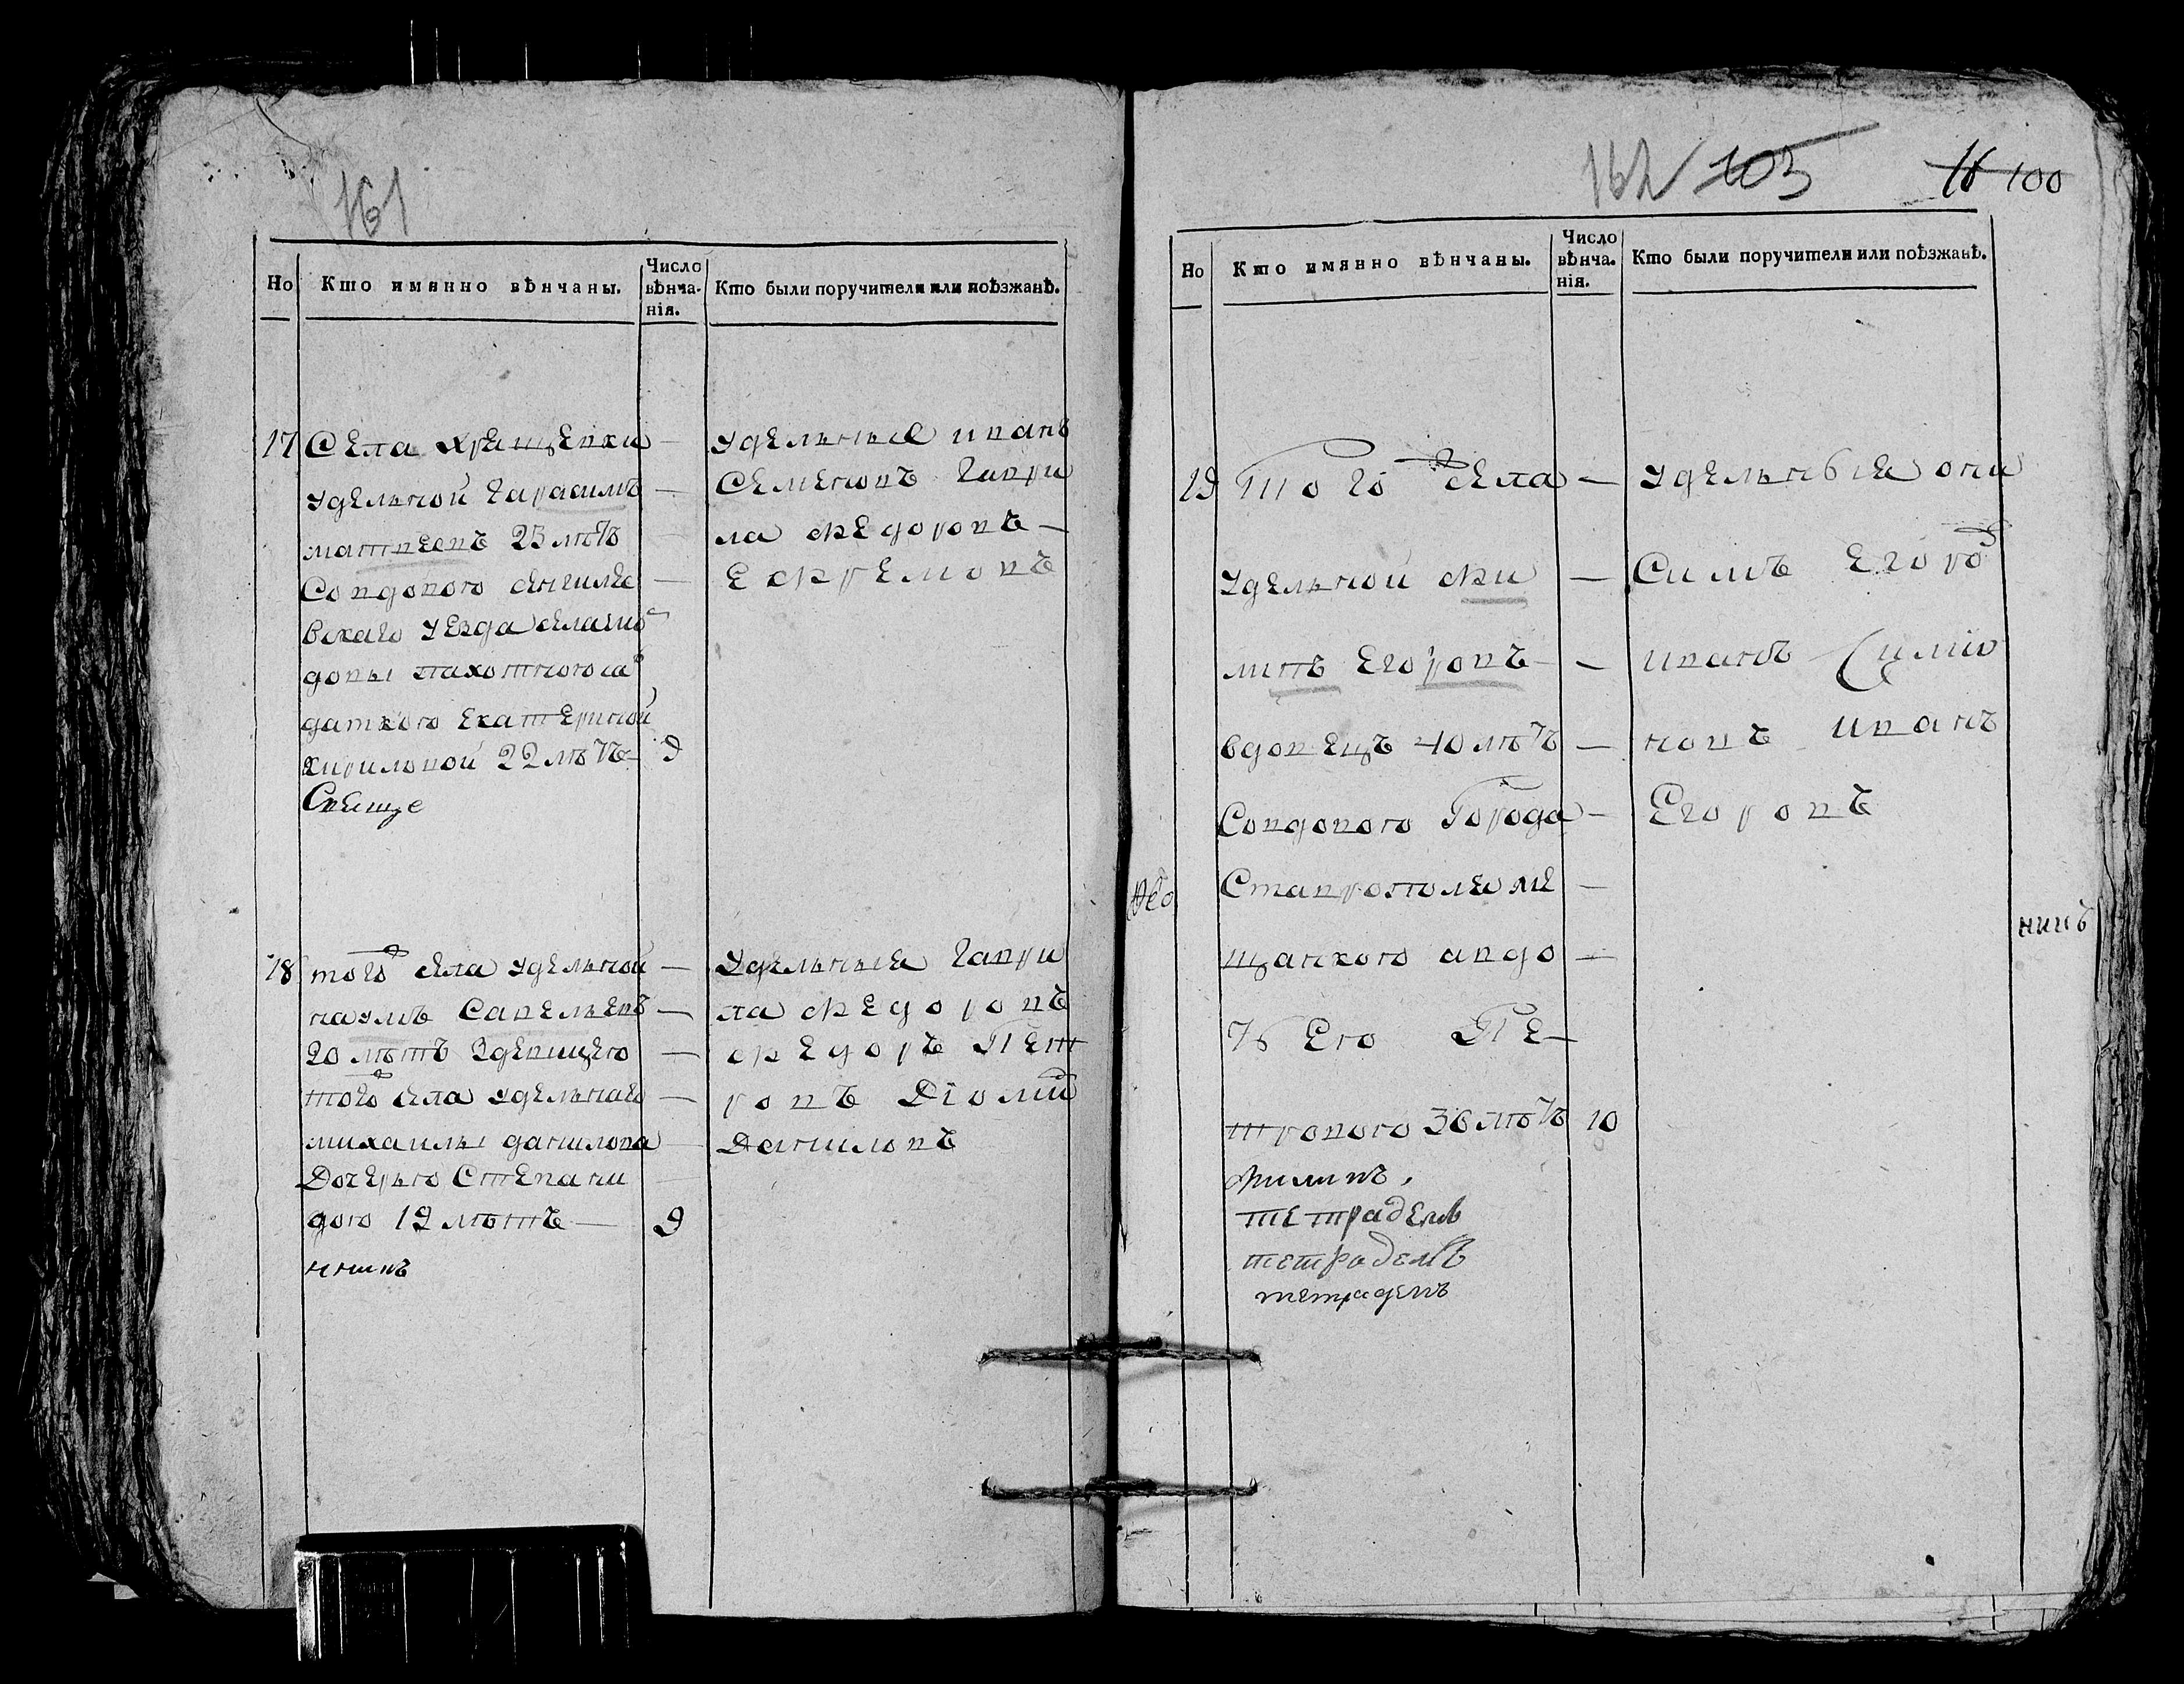 161
Но
Кто имянно вѣнчаны.
Число вѣнча-нія.
Кто были поручители или поѣзжанѣ.
17 Села Хрящевки
удельной гарасимъ
матвеевъ 25 летъ
Совдовою сенгилѣе
вскаго уезда села
довы пахотного сол
даткою екатериной
кириловой 22 летъ 9
удельные иванъ
Семеновъ гаври
ла федоровъ
ефремовъ
18 того села удельной
наумъ Савельевъ
20 летъ Здевицею
того села удельнаго
михаилы данилова
Дочерью Степани
дою 19 летъ 9
Удельныя гаври
ла федоровъ
федоръ Пет
ровъ Діомид
Даниловъ
162 103 16 100
Но
Кто имянно вѣнчаны.
Число вѣнча-нія.
Кто были поручители или поѣзжанѣ.
19 Того села
удельной фи
липъ егоровъ
вдовецъ 40 летъ
Совдовою Города
Ставрополя ме
щанкою авдо
тьею Пе
тровою 36 летъ 10
филипъ
тетрадемъ
тетрадемъ
тетрадемъ
удельныя они
Симъ егоро
иванъ Симио
новъ иванъ
Егоровъ